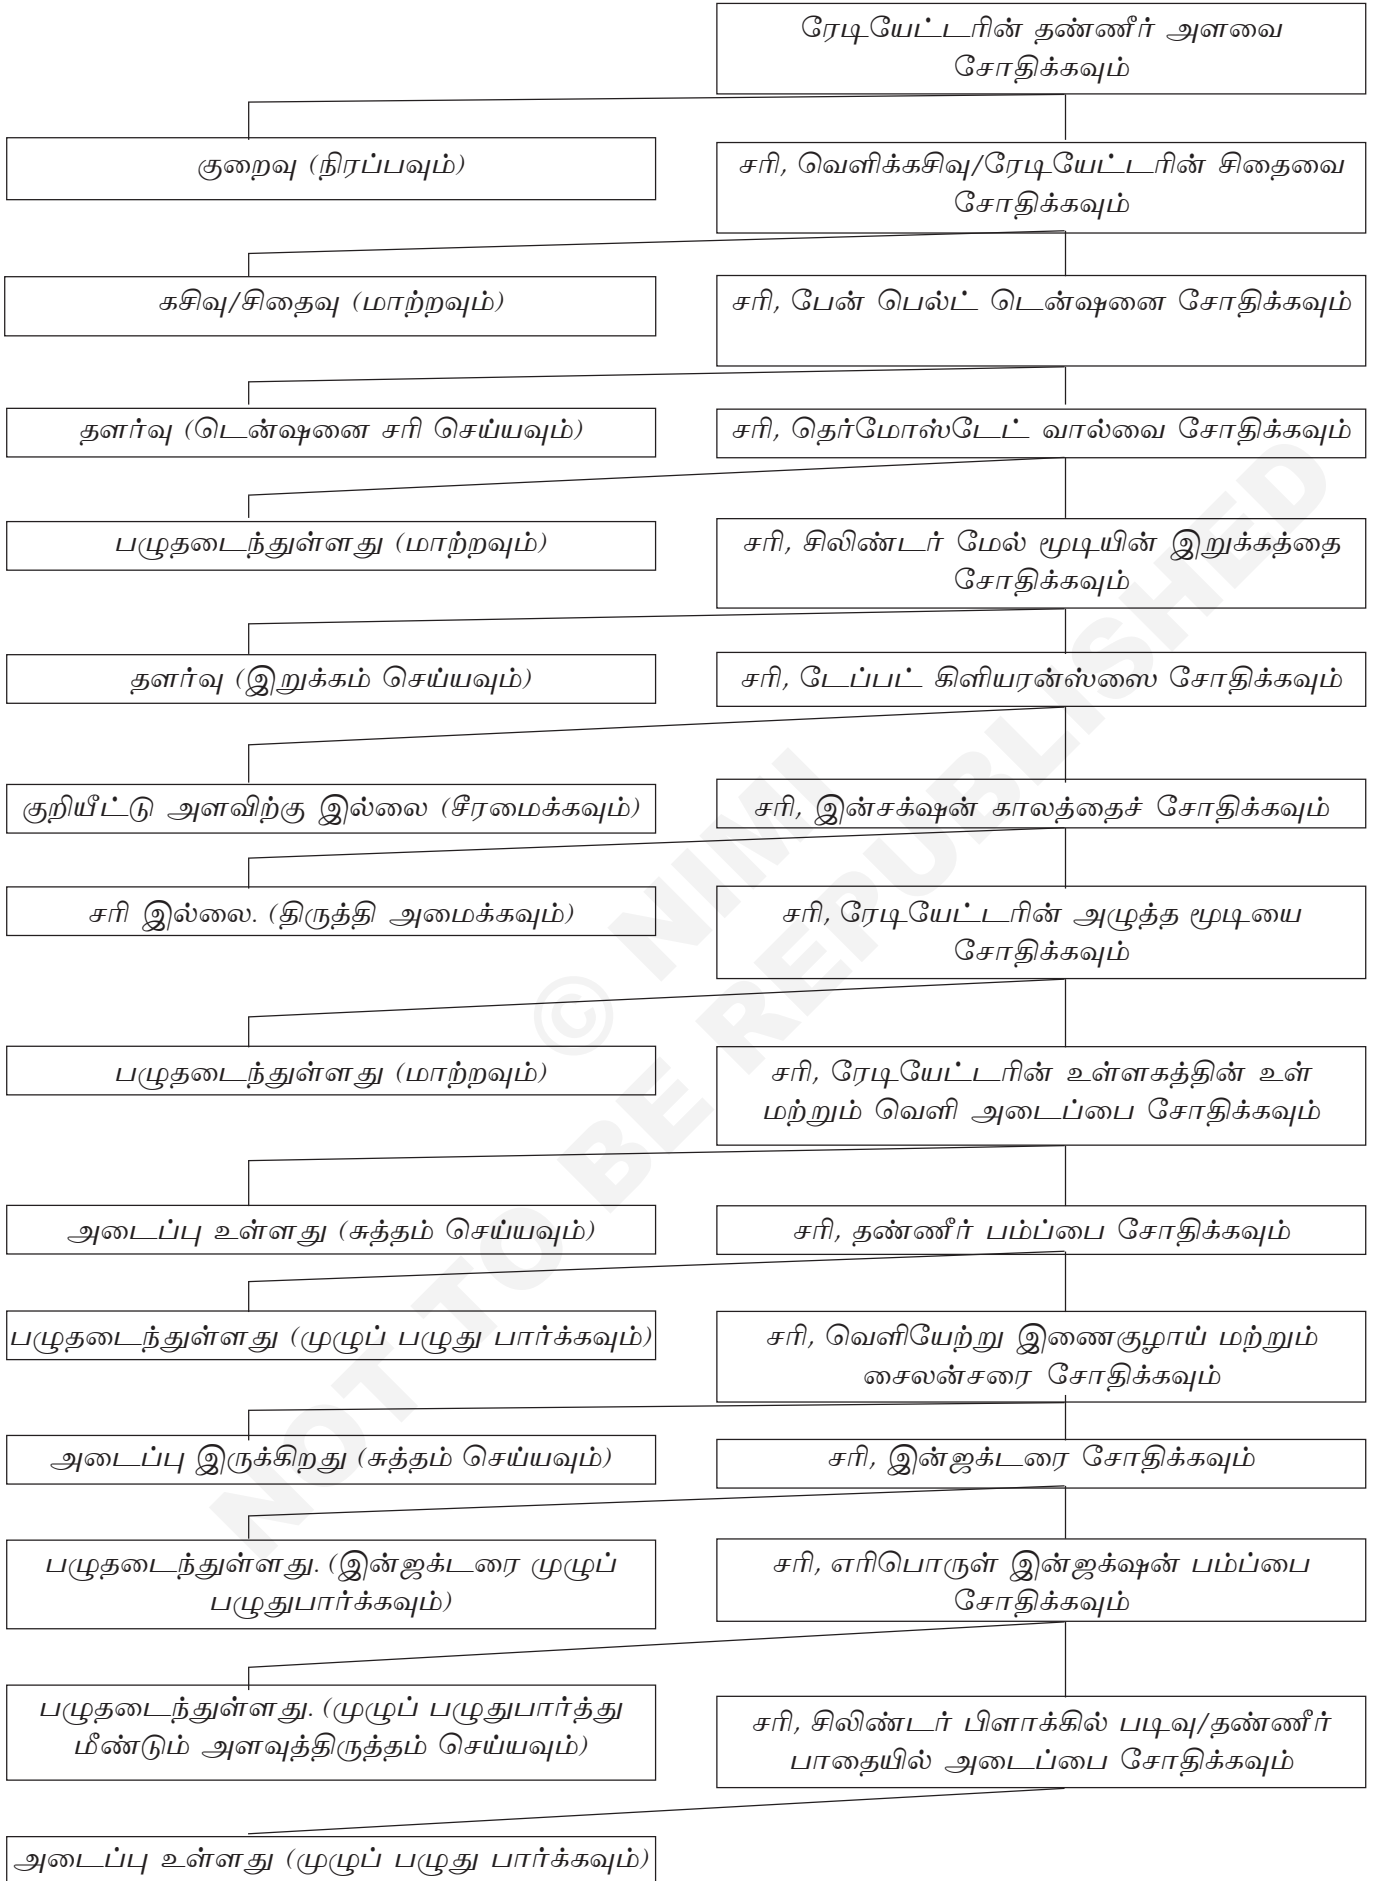 ரேடியேட்டரின் தண்ணீர் அளவை
சோதிக்கவும்
குறைவு (நிரப்பவும்)
சரி, வெளிக்கசிவு/ரேடியேட்டரின் சிதைவை
சோதிக்கவும்
கசிவு/சிதைவு (மாற்றவும்)
சரி, பேன் பெல்ட் டென்ஷனை சோதிக்கவும்
தளர்வு (டென்ஷனை சரி செய்யவும்)
சரி, தெர்மோஸ்டேட் வால்வை சோதிக்கவும்
பழுதடைந்துள்ளது (மாற்றவும்)
சரி, சிலிண்டர் மேல் மூடியின் இறுக்கத்தை
சோதிக்கவும்
தளர்வு (இறுக்கம் செய்யவும்)
சரி, டேப்பட் கிளியரன்ஸ்ஸை சோதிக்கவும்
குறியீட்டு அளவிற்கு இல்லை (சீரமைக்கவும்)
சரி, இன்சக்ஷன் காலத்தைச் சோதிக்கவும்
சரி இல்லை. (திருத்தி அமைக்கவும்)
சரி, ரேடியேட்டரின் அழுத்த மூடியை
சோதிக்கவும்
பழுதடைந்துள்ளது (மாற்றவும்)
சரி, ரேடியேட்டரின் உள்ளகத்தின் உள்
மற்றும் வெளி அடைப்பை சோதிக்கவும்
அடைப்பு உள்ளது (சுத்தம் செய்யவும்)
சரி, தண்ணீர் பம்ப்பை சோதிக்கவும்
பழுதடைந்துள்ளது (முழுப் பழுது பார்க்கவும்)
சரி, வெளியேற்று இணைகுழாய் மற்றும்
சைலன்சரை சோதிக்கவும்
அடைப்பு இருக்கிறது (சுத்தம் செய்யவும்)
சரி, இன்ஜக்டரை சோதிக்கவும்
பழுதடைந்துள்ளது. (இன்ஜக்டரை முழுப்
பழுதுபார்க்கவும்)
சரி, எரிபொருள் இன்ஜக்ஷன் பம்ப்பை
சோதிக்கவும்
பழுதடைந்துள்ளது. (முழுப் பழுதுபார்த்து
மீண்டும் அளவுத்திருத்தம் செய்யவும்)
சரி, சிலிண்டர் பிளாக்கில் படிவு/தண்ணீர்
பாதையில் அடைப்பை சோதிக்கவும்
அடைப்பு உள்ளது (முழுப் பழுது பார்க்கவும்)
© NIMI
NOT TO BE REPUBLISHED